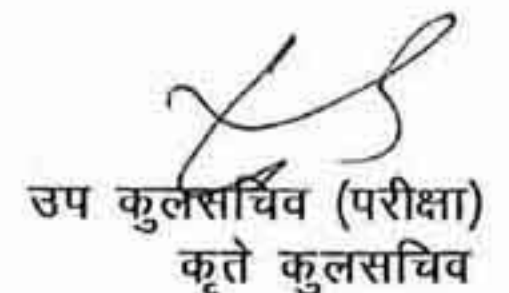 उप कुलसचिव (परीक्षा)
कृते कुलसचिव